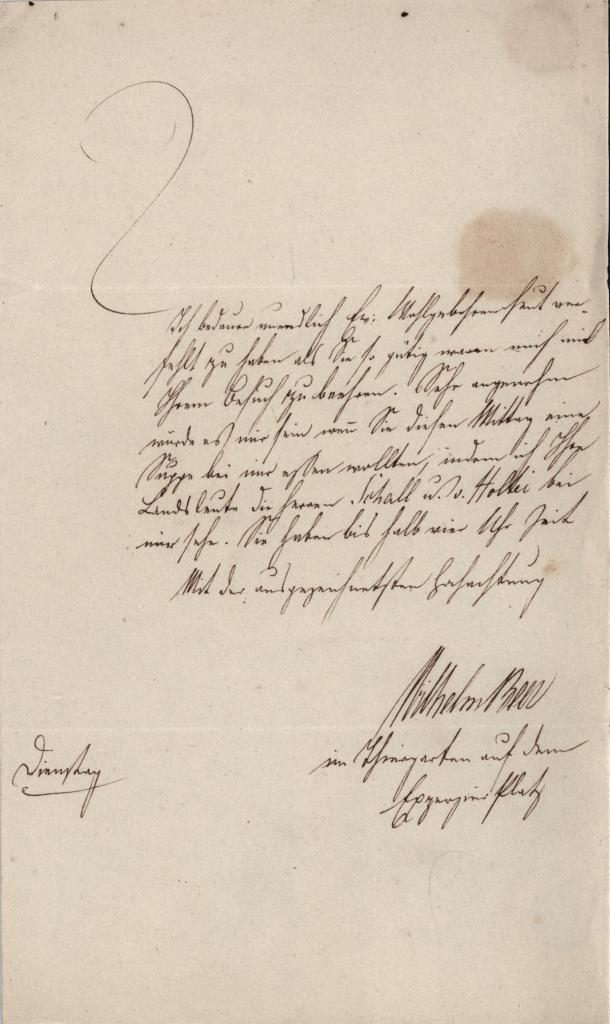 Ich bedaure unendlich Ew: Wohlgebohren heut ver-
fehlt zu haben als Sie so gütig waren mich mit
Ihrem Besuch zu beehren. Sehr angenehm
würde es mir sein wenn Sie diesen Mittag eine
Suppe bei mir essen wollten, indem ich Ihre
Landsleute die Herren Schall u. v. Holtei bei
mir sehe. Sie haben bis halb vier Uhr Zeit
Mit der ausgezeichnetsten Hochachtung
Wilhelm Beer
im Thiergarten auf dem
Exerzier Platz
Dienstag